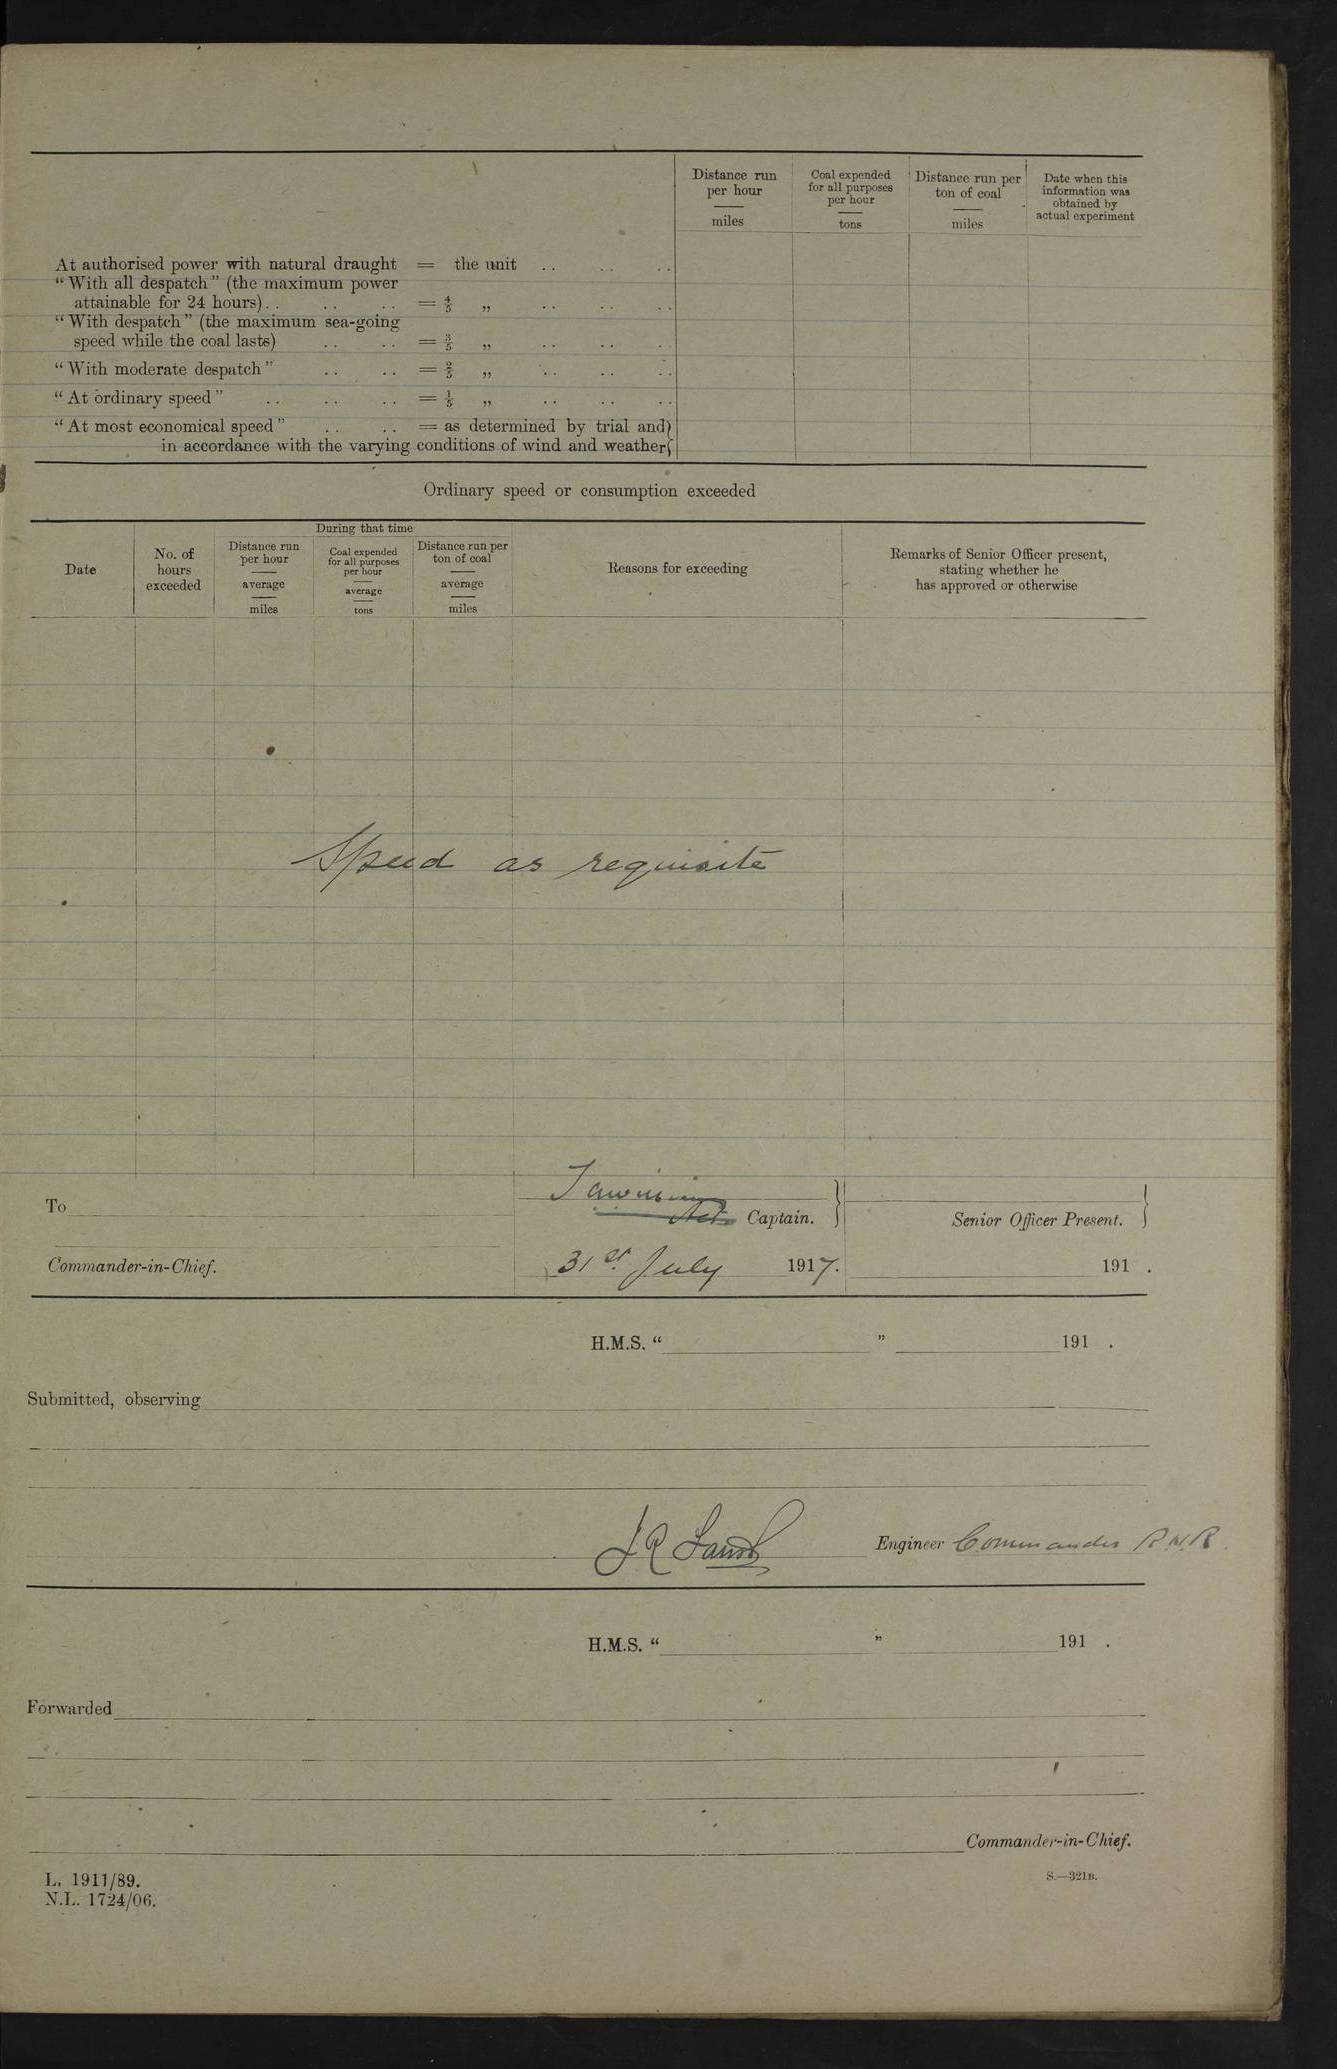 Distance run per hour miles
Coal expended for all purposes per hour tons
Distance run per ton of coal miles
Date when this information was obtained by actual experiment
At authorised power with natural draught = the unit .. .. ..
"With all despatch" (the maximum power
attainable for 24 hours).. .. .. = 4/5 „ .. .. ..
"With despatch" (the maximum sea-going
speed while the coal lasts) .. .. = 3/5 „ .. .. ..
"With moderate despatch" .. .. = 2/5 „ .. .. ..
"At ordinary speed" .. .. .. = 1/5 „ .. .. ..
"At most economical speed" .. .. = as determined by trial and}
in accordance with the varying conditions of wind and weather}
Ordinary speed or consumption exceeded
During that time
Date
No. of hours exceeded
Distance run per hour average miles
Coal expended for all purposes per hour average tons
Distance run per ton of coal average miles
Reasons for exceeding
Remarks of Senior Officer present, stating whether he has approved or otherwise
Speed as requisite
To
Captain. }
Senior Officer Present. }
Commander-in-Chief.
31st July 1917.
191 .
H.M.S. " " 191 .
Submitted, observing
J R
Engineer Commander R.N.R.
H.M.S. " " 191 .
Forwarded
Commander-in-Chief.
L. 1911/89.
N.L. 1724/06.
S.—321B.